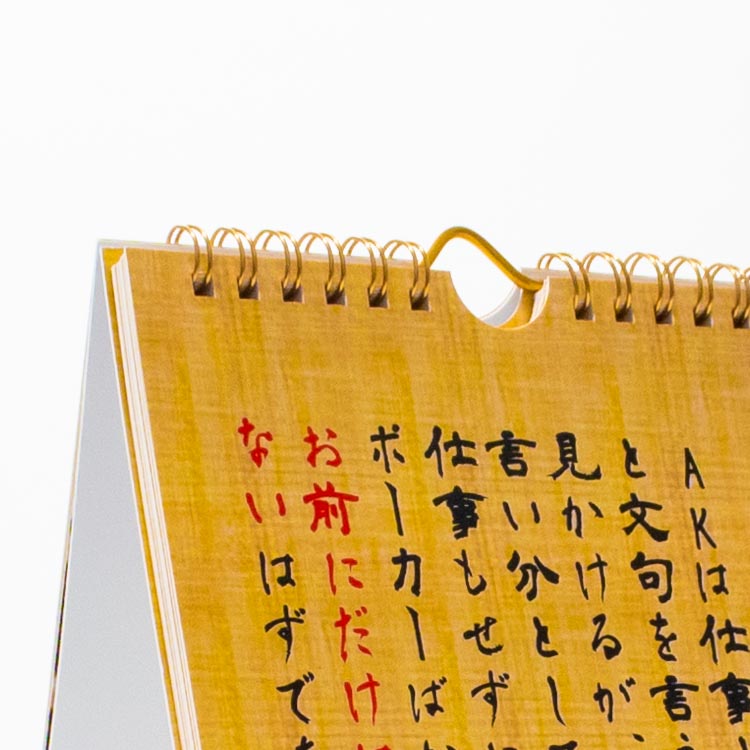 AKは仕事
と文句を言
見かけるが
言い分とし
仕事もせず
ポーカーば
お前にだけ
ないはずで